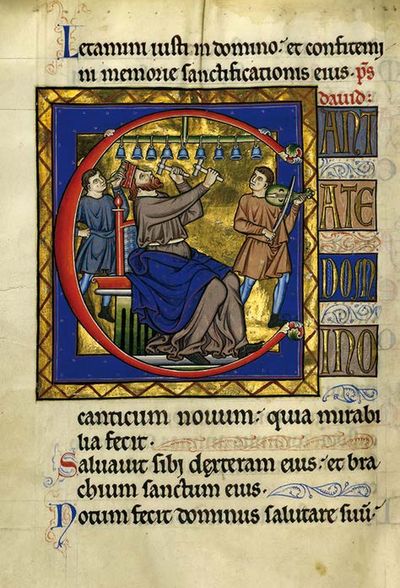 Letamini iusti in domino· et confitemi
ni memorie sanctificationis eius· p̄s
dauid:
CANT
ATE
DOM
INO
canticum nouum· quia mirabi
lia fecit·
Saluauit sibi dexteram eius· et bra
chium sanctum eius·
Notum fecit dominus salutare suū·